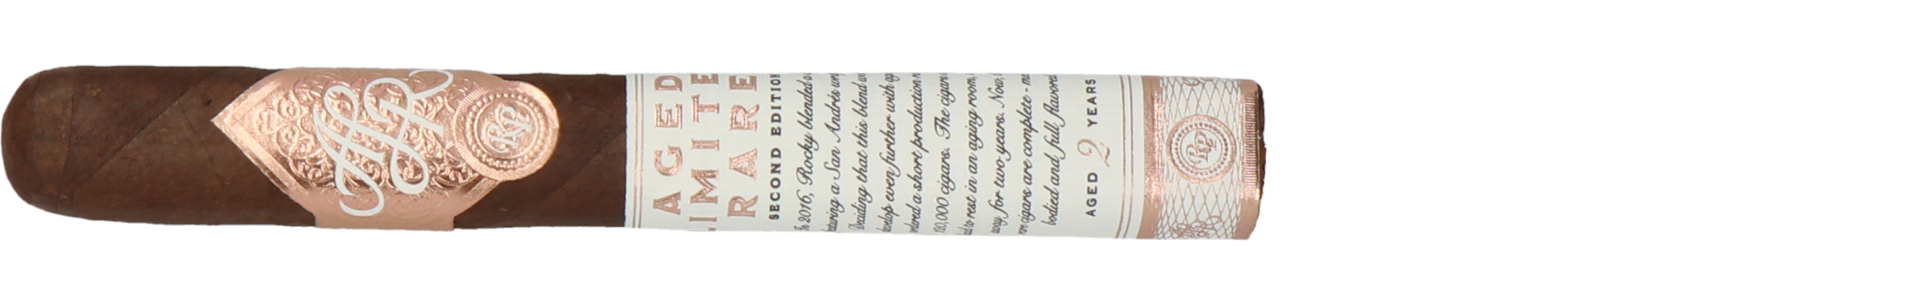 ALR
RP
AGED
LIMITED
RARE
SECOND EDITION
In 2016, Rocky blended a
a San Andrés
Deciding that this blend
even further with
a short production
cigars. The cigars
to rest in an aging room,
for two years. Now,
cigars are complete - 
bodied and full flavored
AGED 2 YEARS
RP